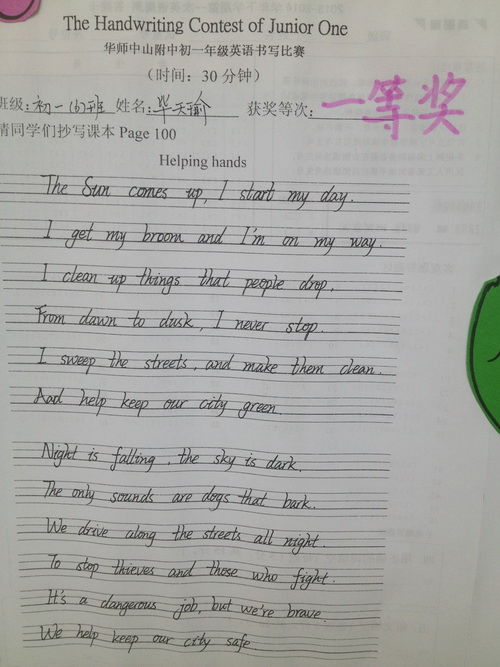 The Handwriting Contest of Junior One
华师中山附中初一年级英语书写比赛
(时间：30 分钟)
班级: 初一(6)班 姓名: 毕天瑜 获奖等次: 一等奖
请同学们抄写课本 Page 100
Helping hands
The Sun comes up, I start my day.
I get my broom and I'm on my way.
I clean up things that people drop.
From dawn to dusk, I never stop.
I sweep the streets, and make them clean.
And help keep our city green.
Night is falling, the sky is dark.
The only sounds are dogs that bark.
We drive along the streets all night.
To stop thieves and those who fight.
It's a dangerous job, but we're brave.
We help keep our city safe.